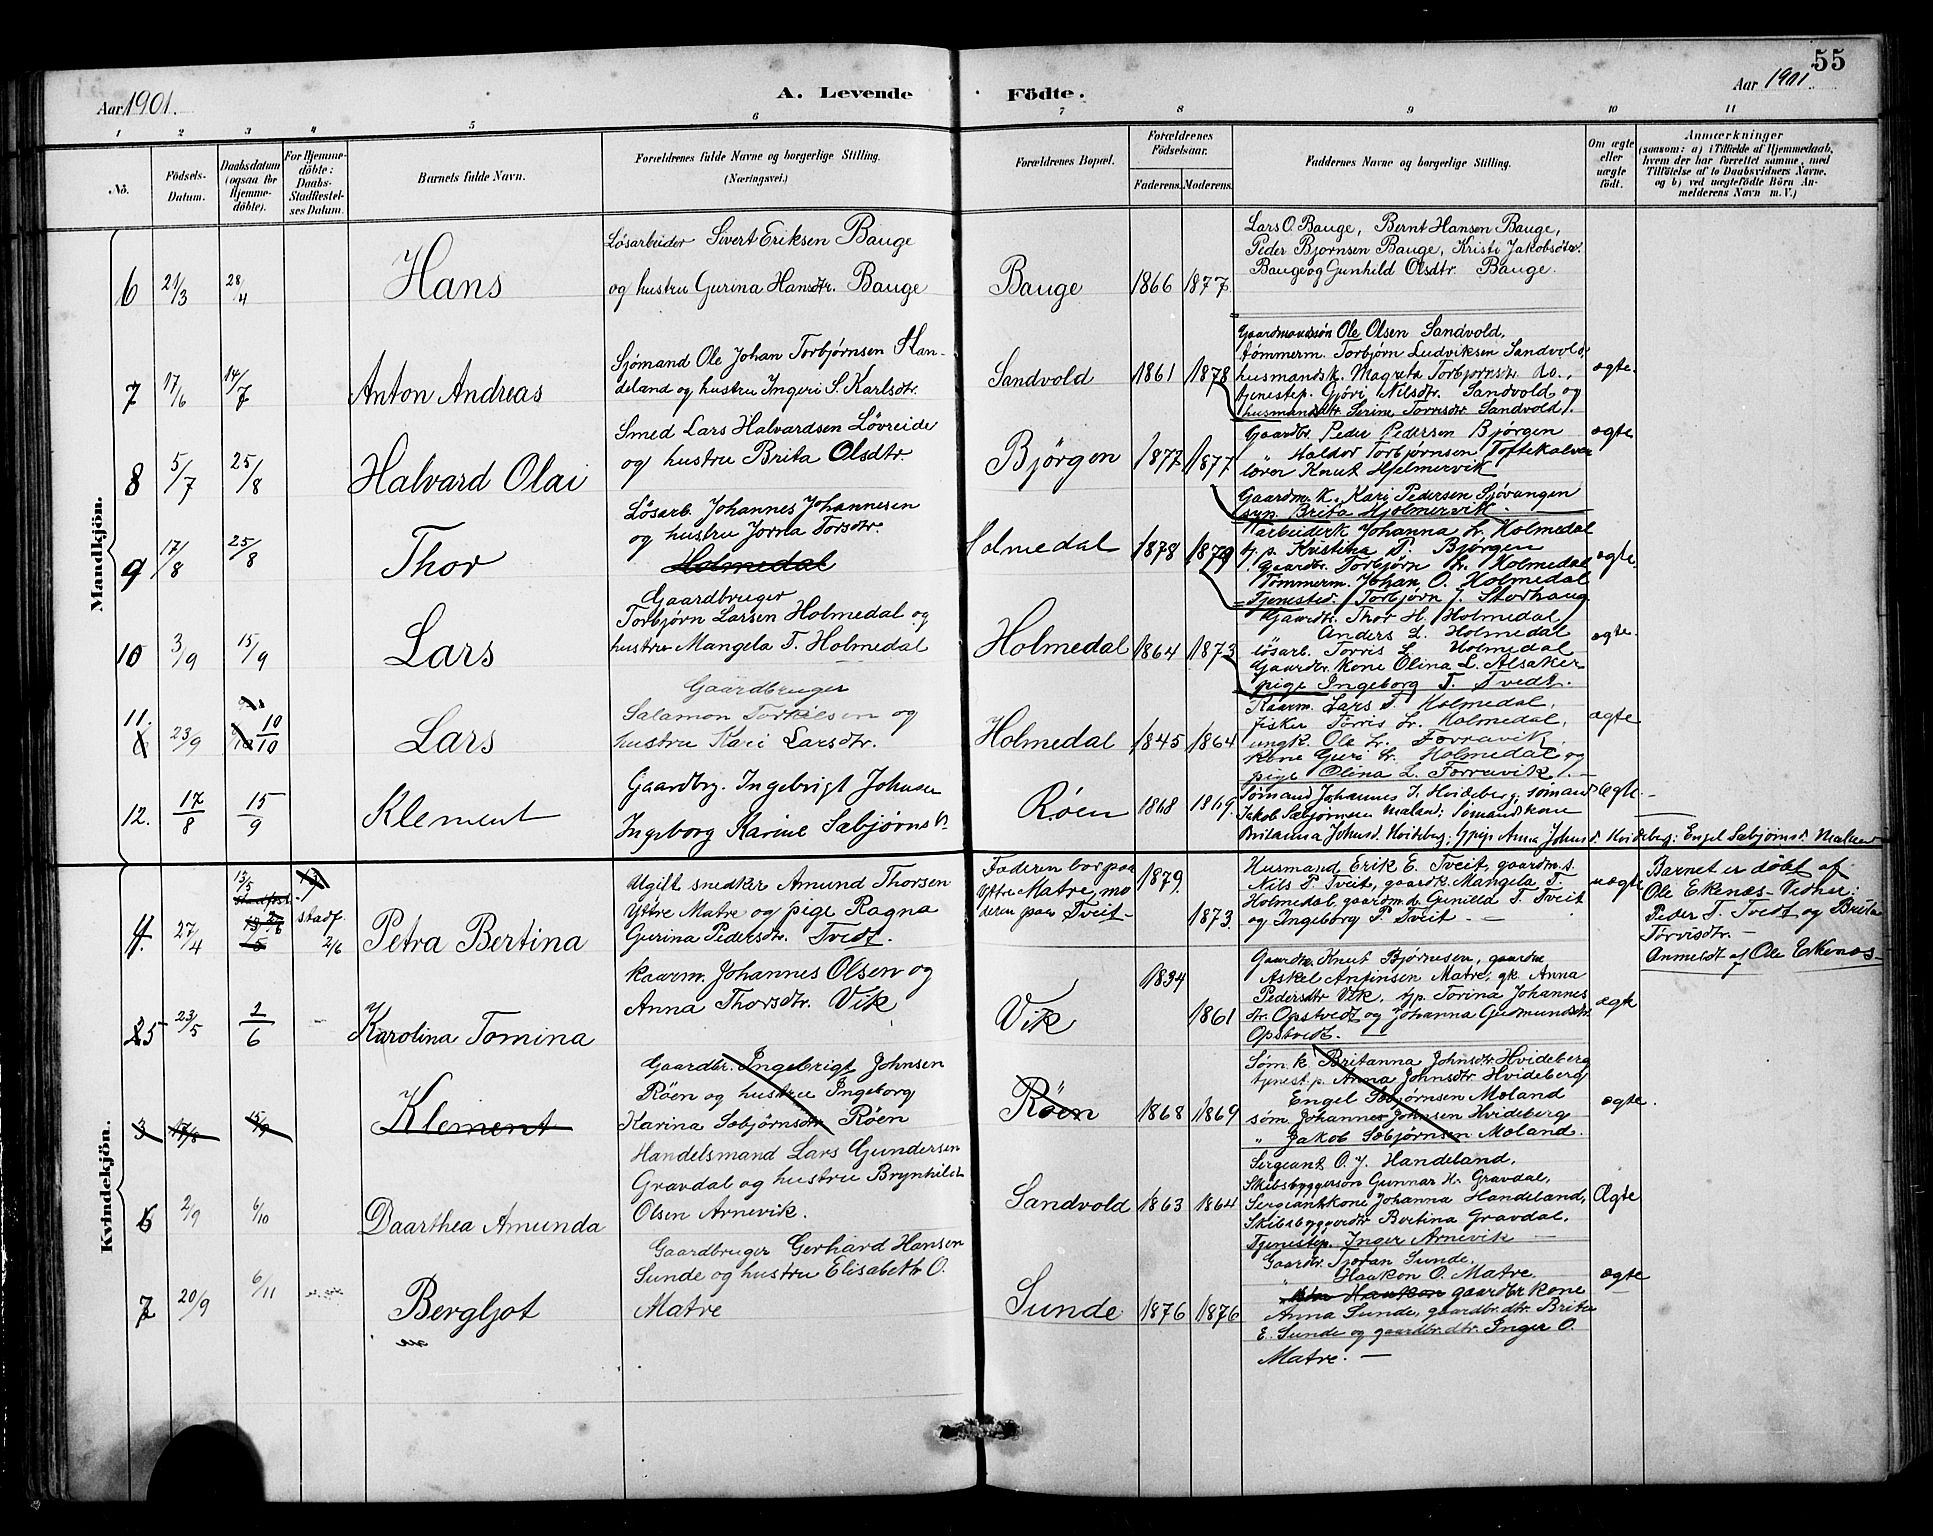 55
Aar 1901. A. Levende Födte. Aar 1901.
1 2 3 4 5 6 7 8 9 10 11
No.
Födsels-Datum.
Daabsdatum (ogsaa for Hjemme-döbte).
For Hjemme-döbte: Daabs-Stadfæstel-ses Datum.
Barnets fulde Navn.
Forældrenes fulde Navne og borgerlige Stilling.
(Næringsvei.)
Forældrenes Bopæl.
Forældrenes Födselsaar.
Faderens. Moderens.
Faddernes Navne og borgerlige Stilling.
Om ægte eller uægte födt.
Anmærkninger
(saasom: a) i Tilfælde af Hjemmedaab,
hvem der har forrettet samme, med
Tilföielse af to Daabsvidners Navne.
og b) ved uægtefödte Börn An-
melderens Navn m. V.)
Mandkjön.
6 21/3 28/4 Hans
Løsarbeider Sivert Eriksen Bauge
og hustru Gurina Hansdtr. Bauge
Bauge 1866 1877
Lars O. Bauge, Bernt Hansen Bauge,
Peder Bjornsen Bauge, Kristi Jakobsdtr.
Bauge og Gunhild Olsdtr. Bauge.
7 17/6 14/7 Anton Andreas
Sjømand Ole Johan Torbjørnsen Han-
deland og hustru Ingeri S. Karlsdtr.
Sandvold 1861 1878
Gaardmandssøn Ole Olsen Sandvold,
tømmerm. Torbjørn Ludviksen Sandvold
husmandsk. Magreta Torbjørnsdtr do.,
tjenestep. Gjøri Nilsdtr. Sandvold og
husmandsdtr Serine Tornsdtr Sandvold.
ægte
8 5/7 25/8 Halvard Olai
Smed Lars Halvardsen Løvreide
og hustru Brita Olsdtr.
Bjørgen 1877 1877
Gaardbr. Peder Pedersen Bjørgen
" Haldor Torbjørnsen Toftekalven
lærer Knut Hjelmervik
Gaardm. k. Kari Pedersen Sjovangen
syp. Brita Hjolmervik.
ægte
9 17/8 25/8 Thor
Løsarb. Johannes Johannesen
og hustru Jorna Torsdtr.
Holmedal
Holmedal 1878 1879
arbeiderk Johanna L. Holmedal
tj. p. Kristina P. Bjørgen
Gaardbr. Torbjørn L. Holmedal
Tømmerm. Johan O. Holmedal
Tjenested. Torbjørn J. Storhaug
ægte.
10 3/9 15/9 Lars
Gaardbruger
Torbjørn Larsen Holmedal og
hustru Mangela T. Holmedal
Holmedal 1864 1873
Gaardbr. Thor H. Holmedal
Anders L. Holmedal
løsarb. Torris L Holmedal
Gaardbr. kone Olina L. Alsaker
pige Ingeborg T. Tvedt.
ægte.
11. 23/9 10/10 Lars
Gaardbruger
Salamon Torkilsen og
hustru Kari Larsdtr.
Holmedal 1845 1864
Kaarm. Lars T. Holmedal,
fisker Torris L. Holmedal,
ungk. Ole L. Forravik
kone Guri L. Holmedal og
pige Olina L. Forravik.
ægte
12. 17/8 15/9 Klement
Gaardbg. Ingebrigt Johnsen
Ingeborg Karine Sæbjørnsdr
Røen 1868 1869.
Sømand Johannes J. Hvideberg; sømand
Jakob Sæbjørnsen Maland; Sømandskone
Britanna Johnsd. Hvideberg; pige Anna Johnsd. Hvideberg; Engel Sæbjørnsd. Maland
Ægte.
Kvindekjön.
4. 27/4 13/5 stadf. 2/6 Petra Bertina
Ugift snedker Amund Thorsen
Yttre Matre og pige Ragna
Gurina Pedersdtr. Tvedt.
Faderen bor paa
Yttre Matre, mo-
deren paa Tveit
1879. 1873.
Husmand Erik E. Tveit, gaardm. s.
Nils P. Tveit, gaardk. Mangela T.
Holmedal, gaardm. d. Gunilld T. Tveit
og Ingeborg P. Tveit
uægte
Barnet er døbt af
Ole Ekenæs. Vidner:
Peder T. Tvedt og Brita
Torvisdtr.
Anmeldt af Ole Ekenæs
5 23/5 2/6 Karolina Tomina
kaarm. Johannes Olsen og
Anna Thorsdtr. Vik
Vik 1834 1861
Gaardbr. Knut Bjørnesen, gaardm
Askel Anfinsen Matre, gk. Anna
Pedersdtr Vik, tjp. Torina Johannes
dtr. Opstvedt og Johanna Gudmundsdtr.
Opstvedt.
ægte
3 17/8 15/9 Klement
Gaardbr. Ingebrigt Johnsen
Røen og hustru Ingeborg
Karina Sæbjørnsdtr Røen
Røen 1868 1869
Søm. k. Britanna Johnsdtr Hvideberg
tjenest. p. Anna Johnsdtr Hvideberg
Engel Sæbjørnsen Moland
søm. Johannes Johnsen Hvideberg
" Jakob Sæbjørnsen Moland.
ægte.
6 2/9 6/10 Daarthea Amunda
Handelsmand Lars Gundersen
Gravdal og hustru Brynhild
Olsen Arnevik.
Sandvold 1863 1864
Sergeant O. J. Handeland,
Skibsbyggersøn Gunnar H. Gravdal,
Sergeantkone Johanna Handeland,
Skibsbyggerdtr Bertina Gravdal,
Tjenestep. Inger Arnevik
Ægte
7 20/9 6/11 Bergljot
Gaardbruger Gerhard Hansen
Sunde og hustru Elisabeth O.
Matre
Sunde 1876 1876
Gaardbr. Tjoran Sunde.
" Haakon O. Matre.
Haakon gaardbr kone
Anna Sunde, gaardbr. dtr. Brita
E. Sunde og gaardbr. dtr. Inger O.
Matre.
ægte